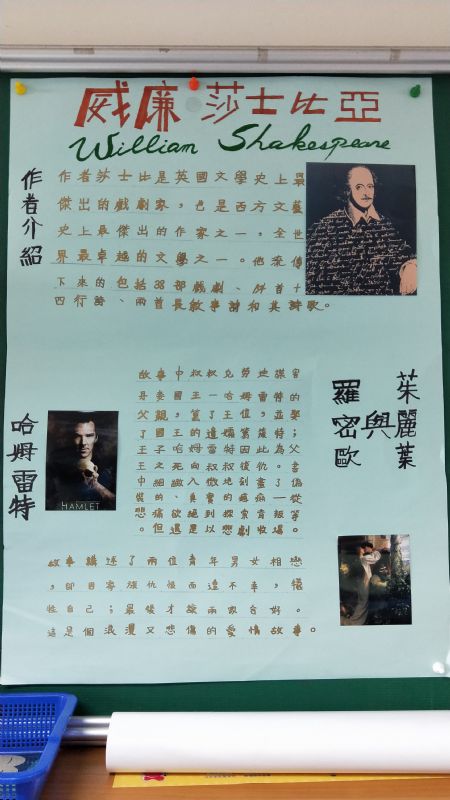 威廉 莎士比亞
William Shakespeare
作者介紹
作者莎士比是英國文學史上最
傑出的戲劇家，也是西方文藝
史上最傑出的作家之一，全世
界最卓越的文學之一。他流傳
下來的包括38部戲劇、
四行詩、兩首長敘事詩和其詩歌。
哈姆雷特
HAMLET
故事中叔叔克勞地謀害
丹麥國王－哈姆雷特的
父親，篡了王位，並娶
了國王的遺孀葛簇特；
王子哈姆雷特因此為父
王之死向叔叔復仇。書
中細緻入微地刻畫了偽
裝的、真實的瘋癲－從
悲痛欲絕到探索背叛等。
但還是以悲劇收場。
茱麗葉
與
羅密歐
故事講述了兩位青年男女相戀
，卻因家族仇恨而遭不幸，犧
牲自己；最後才讓兩家合好。
這是個浪漫又悲傷的愛情故事。